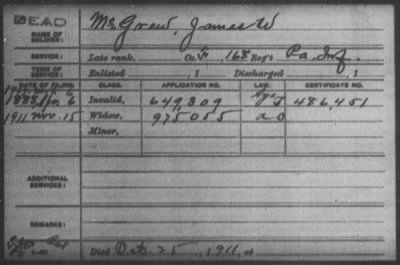 DEAD
NAME OF SOLDIER: McGrew, James W
SERVICE: Late rank, Co. 168 Reg't Pa. Inf.
TERM OF SERVICE: Enlisted , 1 Discharged , 1
DATE OF FILING. CLASS. APPLICATION NO. LAW. CERTIFICATE NO.
1888 6 Invalid, 649,309 486,451
1911 Nov. 15 Widow, 975055
Minor,
ADDITIONAL SERVICES:
REMARKS:
Died Oct. 25, 1911, at